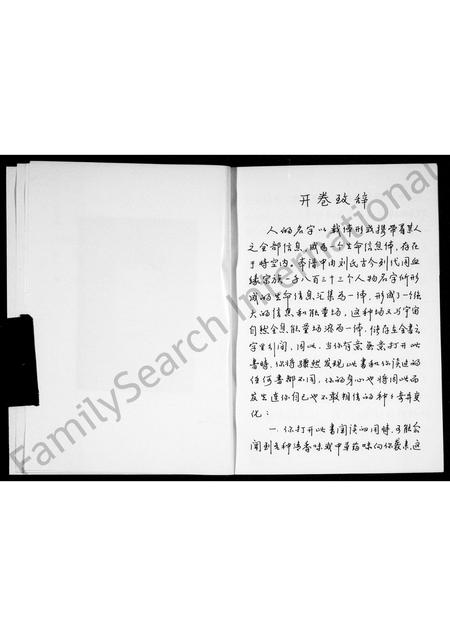 开卷致辞
人的名字以载体形式携带着某人
之全部信息，成为一个生命信息体，存在
于时空内。本谱中由刘氏古今列代同血
缘宗族一千八百三十三个人物名字所形
成的生命信息汇集为一体，形成了一个强
大的信息和能量场，这种场又与宇宙
自然全息能量场溶为一体，储存在全书之
字里行间，因此，当你有意无意打开此
书时，你将骤然发现，此书和你读过的
任何书都不同，你的身心也将因此而
发生连你自己也不敢相信的种种奇异变
化：
一、你打开此书阅读的同时，可能会
闻到各种清香味或中草药味向你袭来，这
FamilySearch International